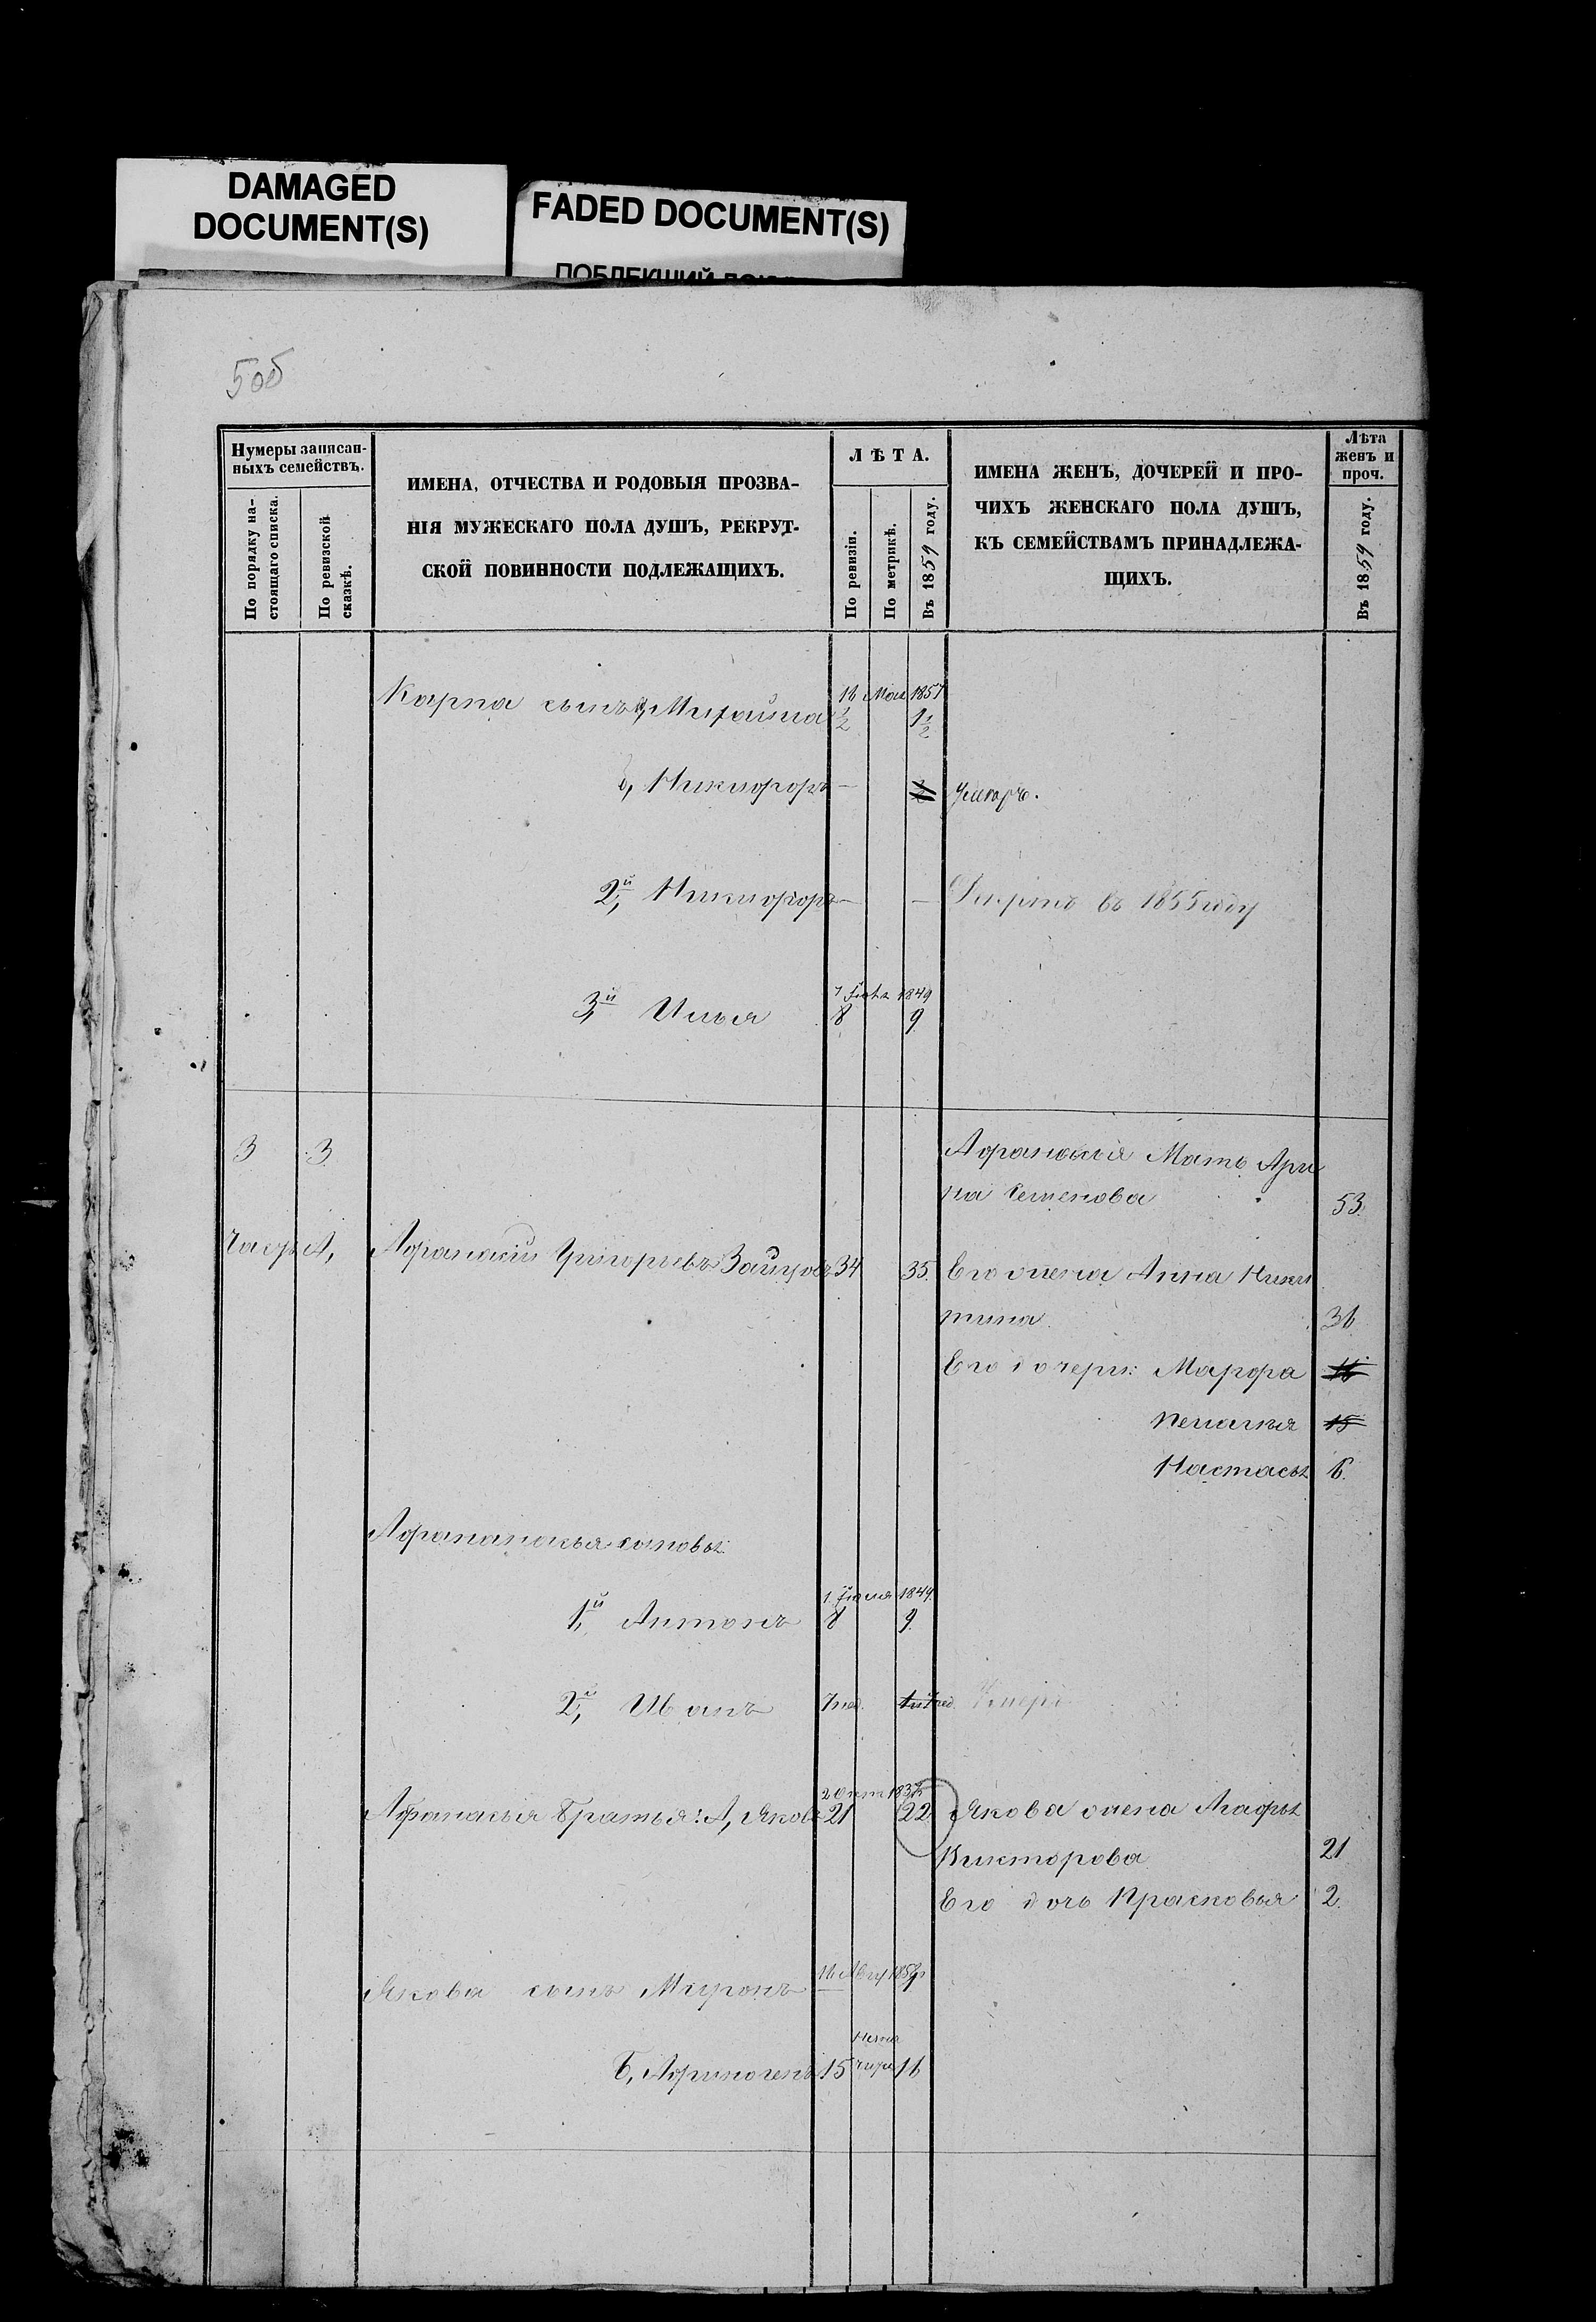 DAMAGED
DOCUMENT(S)
FADED DOCUMENT(S)
ПОБЛЕКШИЙ
50б
Нумеры записан-
ныхъ семействъ.
По порядку на-
стоящаго списка.
По ревизской
сказкѣ.
ИМЕНА, ОТЧЕСТВА И РОДОВЫЯ ПРОЗВА-
НІЯ МУЖЕСКАГО ПОЛА ДУШЪ, РЕКРУТ-
СКОЙ ПОВИННОСТИ ПОДЛЕЖАЩИХЪ.
ЛѢТА.
По ревизіи.
По метрикѣ.
Въ 1859 году.
ИМЕНА ЖЕНЪ, ДОЧЕРЕЙ И ПРО-
ЧИХЪ ЖЕНСКАГО ПОЛА ДУШЪ,
КЪ СЕМЕЙСТВАМЪ ПРИНАДЛЕЖА-
ЩИХЪ.
Лѣта
женъ и
проч.
Въ 1859 году.
16 Мая 1857
Карпа сынъ Михайла ½ 1½
Никифоръ — умеръ.
2й, Никифоръ — — въ 1855 году
1849
3й, Илья 8 9
3 3 Афанасья Мать Ари
на Семенова 53.
А, Афанасій Григорьевъ Зайцовъ 34 35. Его жена Анна Ники
тина 36
Его дочери: Марфа 16
Пелагея 15
Настасья 6.
Афанасья сыновья:
1 Іюля 1849
1й, Антонъ 8 9.
2й, Иванъ 7 нед. Умеръ
2 Окт 1836
Афанасья братья: А, Яковъ 21 22 Якова жена Агафья
Викторова 21
Его дочь Прасковья 2.
16 Авгу 1858
Якова сынъ Миронъ —
Б, Афиногенъ 15 16